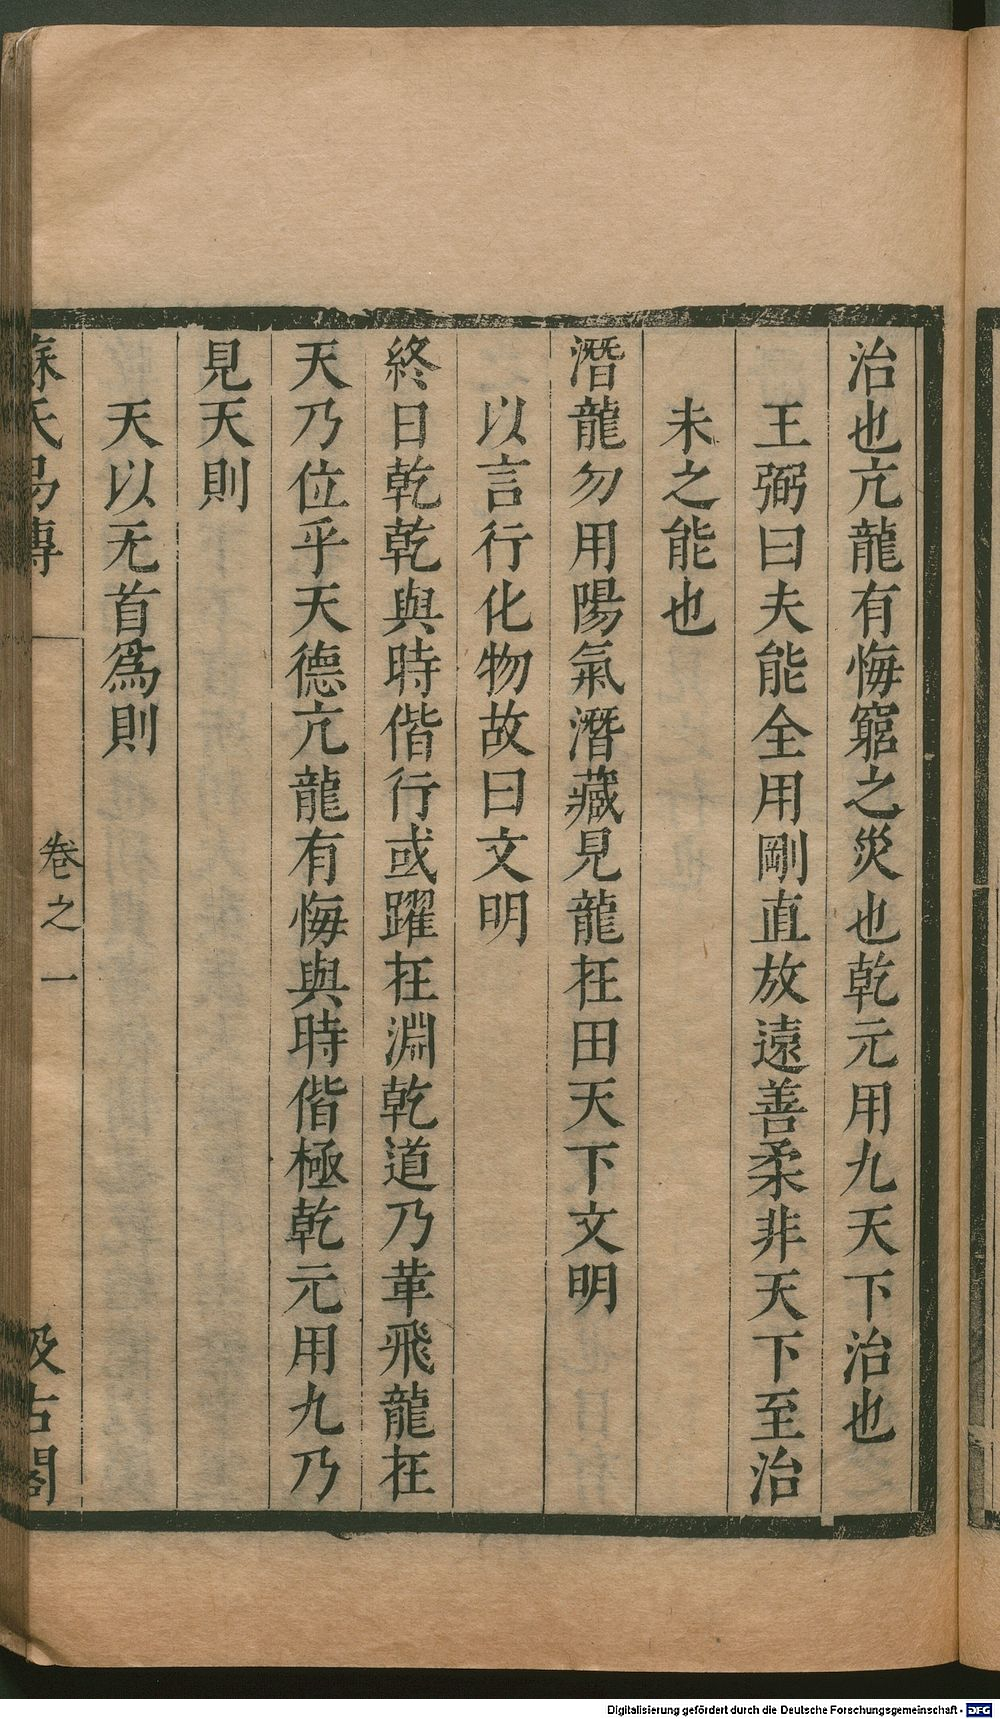 治也亢龍有悔窮之災也乾元用九天下治也
王弼曰夫能全用剛直放遠善柔非天下至治
未之能也
潛龍勿用陽氣潛藏見龍在田天下文明
以言行化物故曰文明
終日乾乾與時偕行或躍在淵乾道乃革飛龍在
天乃位乎天德亢龍有悔與時偕極乾元用九乃
見天則
天以无首爲則
蘇氏易傳 卷之一 汲古閣
Digitalisierung gefördert durch die Deutsche Forschungsgemeinschaft - DFG